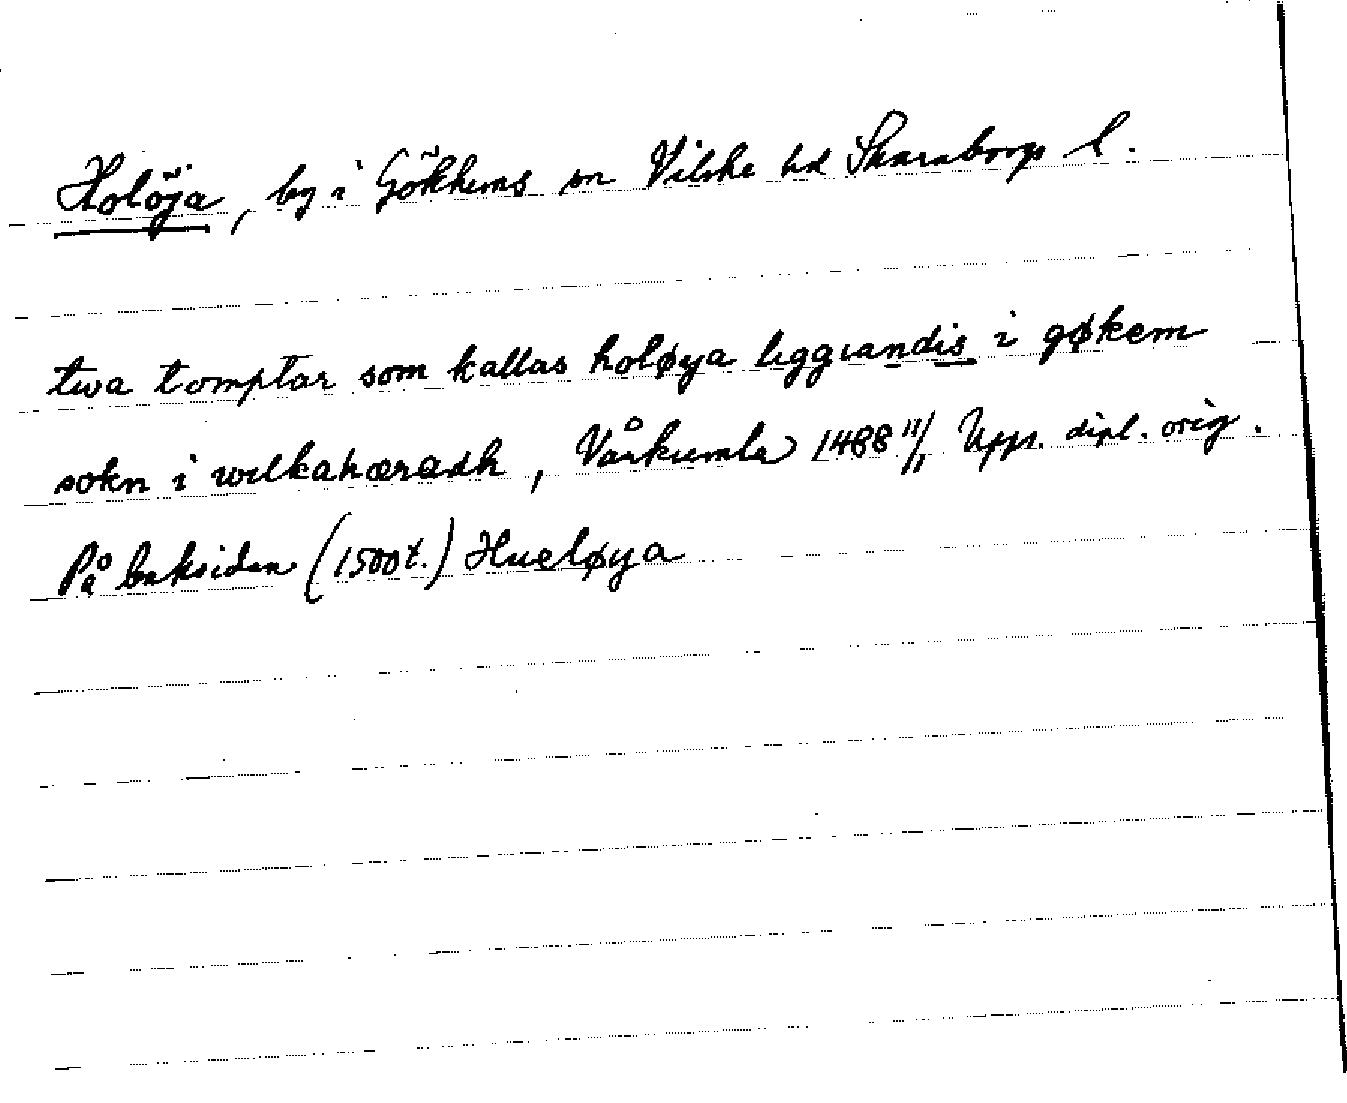 Holöja, by i Gökhems sn Vilske hd Skaraborgs l.
twa tomptar som kallas holøya liggiandis i gøkem
sokn i wilkahæradh, Vårkumla 1488 11/11 Upps. dipl. orig.
På baksidan (1500t.) Hueløya